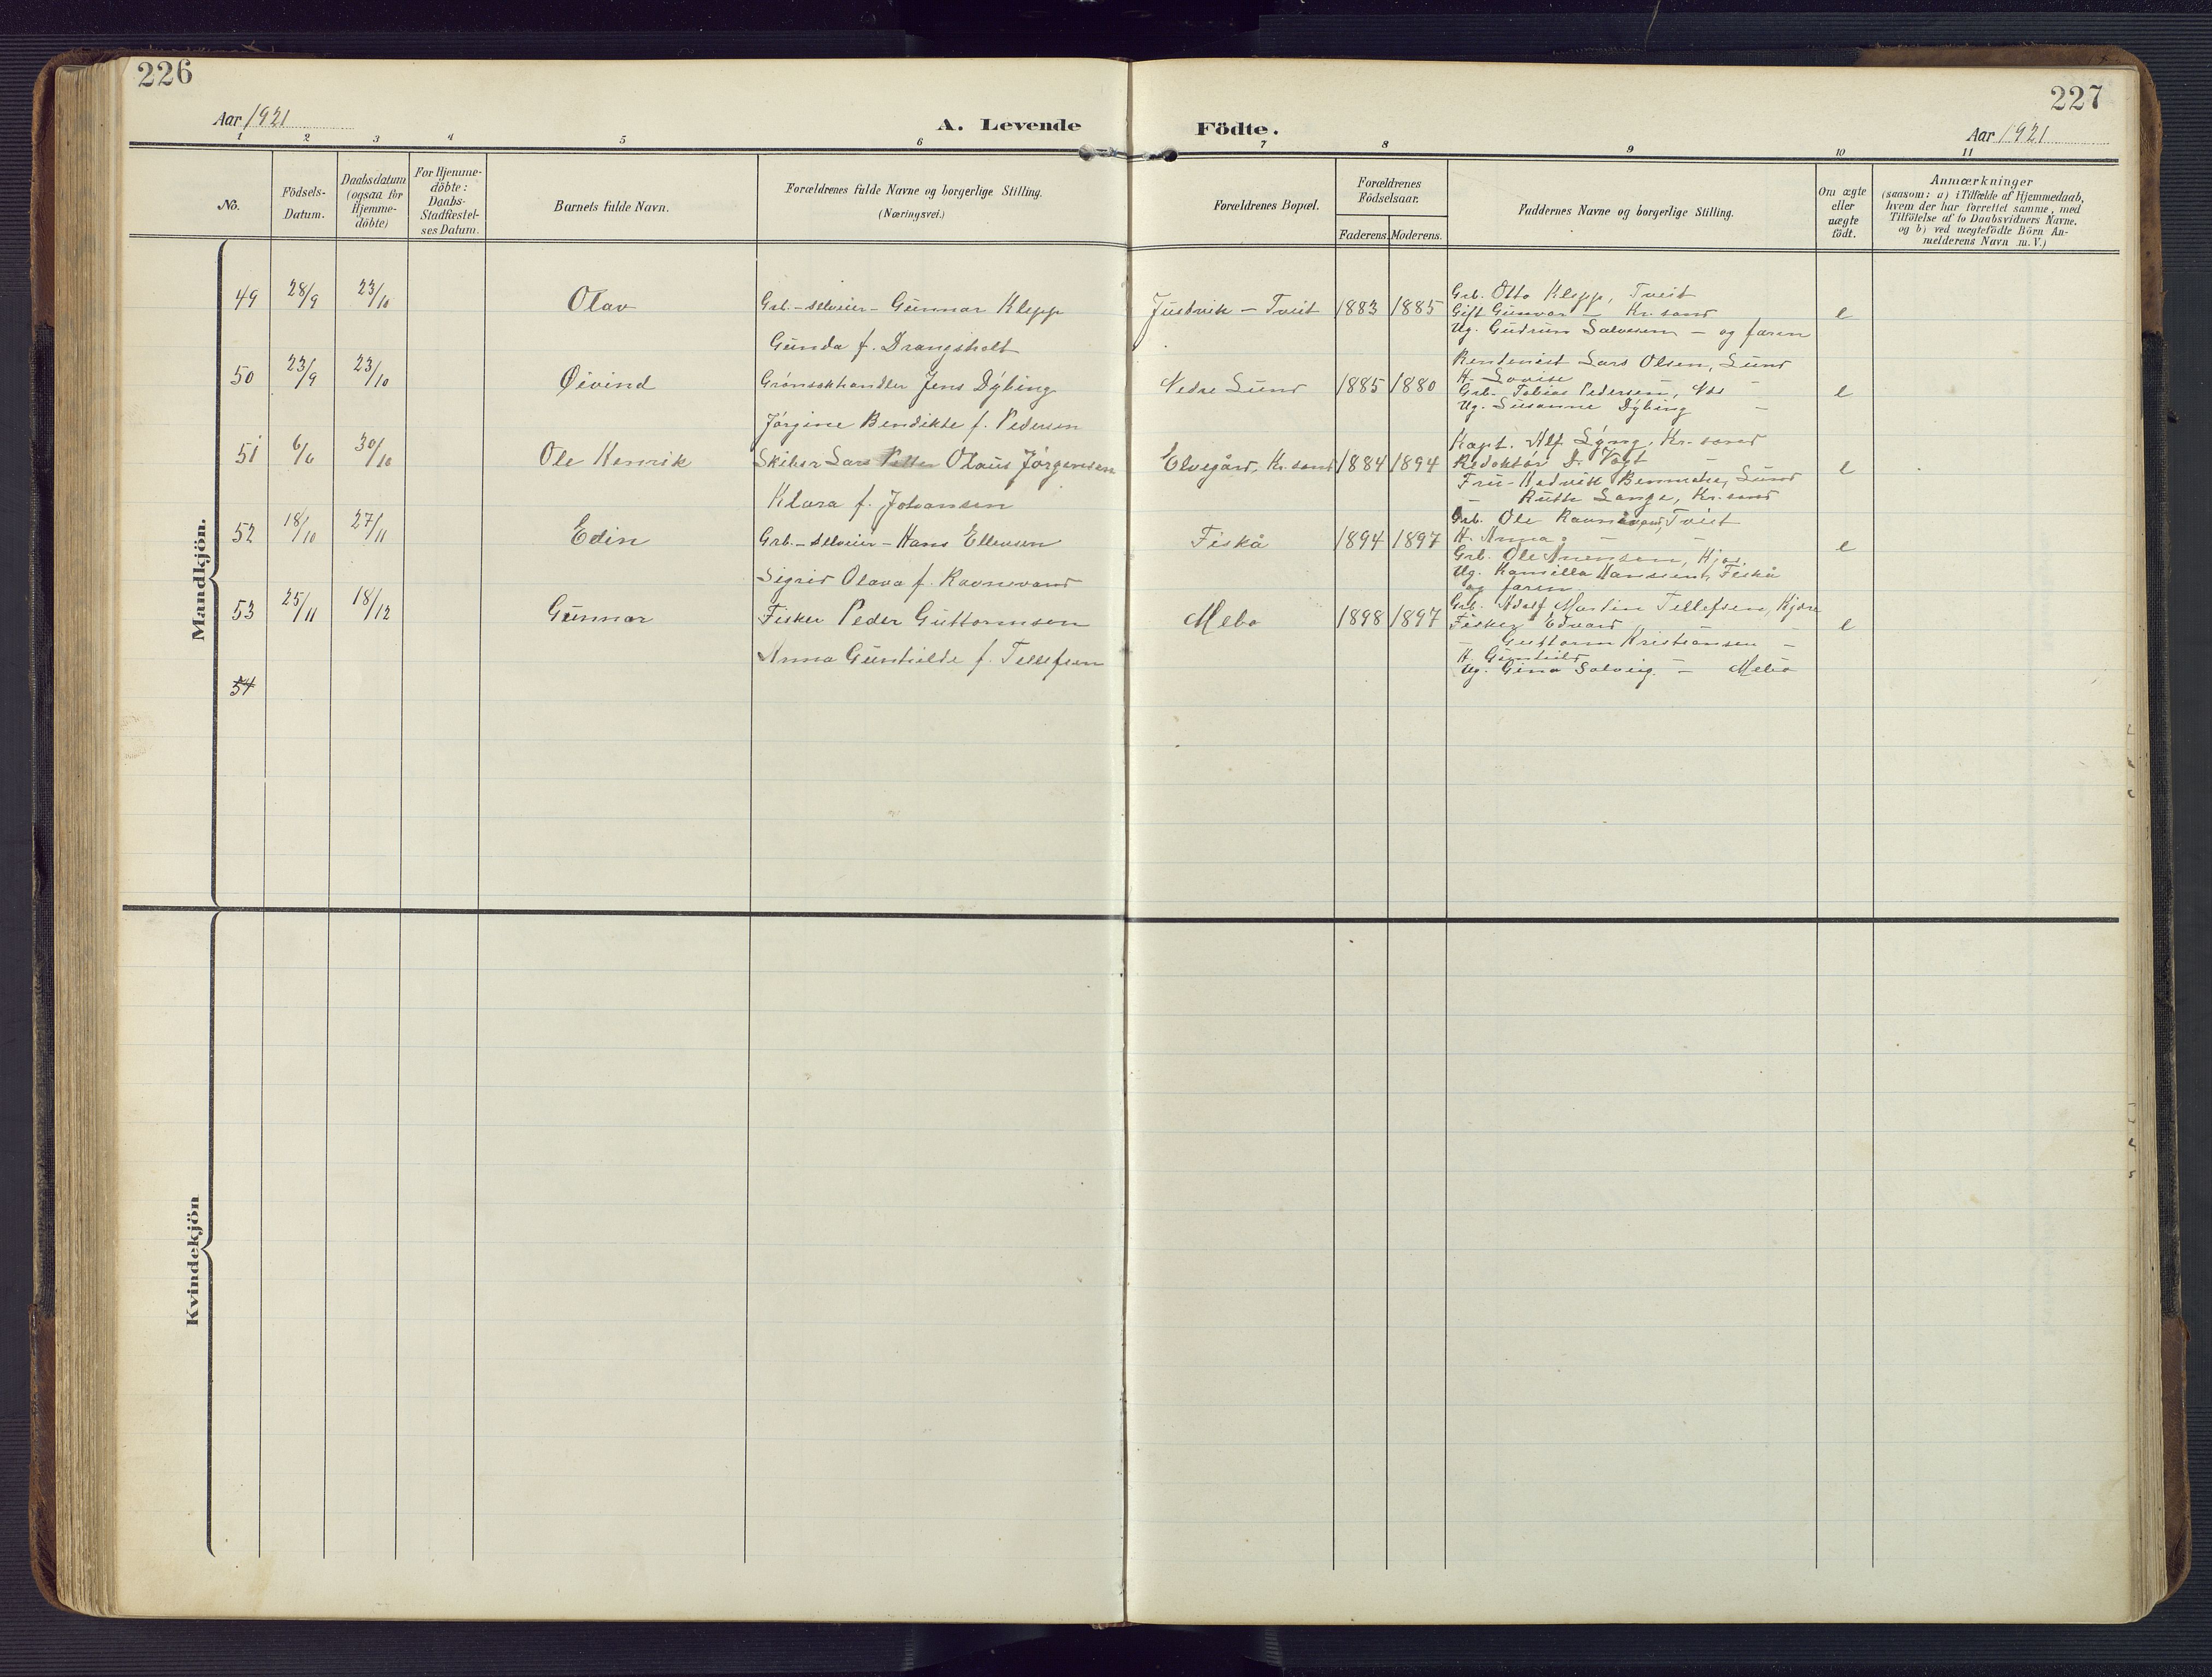 226
Aar 1921
A. Levende
1 2 3 4 5 6
No.
Födsels-Datum.
Daabsdatum (ogsaa for Hjemme-döbte)
For Hjemme-döbte: Daabs-Stadfæstel-ses Datum.
Barnets fulde Navn.
Forældrenes fulde Navne og borgerlige Stilling.
(Næringsvei.)
Mandkjön.
49 28/9 23/10 Olav Grb.-selveier- Gunnar Klepp
Gunda f. Drangsholt
50 23/9 23/10 Øivind Grønsakhandler Jens Dybing
Jørgine Bendikte f. Pedersen
51 6/6 30/10 Ole Henrik Lars Olaus Jørgensen
Klara f. Johansen
52 18/10 27/11 Edin Grb.-selveier- Hans Ellevsen
Sigrid Olava f. Ravnevand
53 25/11 18/12 Gunnar Fisker Peder Guttormsen
Anna Gunhilde f. Tellefsen
54
Kvindekjön
227
Födte.
Aar 1921
7 8 9 10 11
Forældrenes Bopæl.
Forældrenes Födselsaar.
Faderens. Moderens.
Faddernes Navne og borgerlige Stilling.
Om ægte eller uægte födt.
Anmærkninger
(saasom: a) i Tilfælde af Hjemmedaab,
hvem der har forrettet samme, med
Tilföielse af to Daabsvidners Navne.
og b) ved uægtefödte Börn An-
melderens Navn m. V.)
Justvik - Tveit 1883 1885 Grb. Otto Klepp, Tveit
Gift Gunvor - Kr.sand
Ug. Gudrun Salvesen - og faren
e
Nedre Lund 1885 1880 Lars Olsen, Lund
H. Lovise
Grb. Tobias Pedersen,
Ug. Susanne Dybing -
e
Elvegård, Kr.sand 1884 1894 Kapt. Alf Lyng, Kr.sand
Redaktør D. Vogt -
Fru Lund
- Ruth Lange, Kr.sand
e
Fiskå 1894 1897 Grb. Ole Ravnevand, Tveit
H. Anna - -
Grb. Ole
Ug. Kamilla Fiskå
og faren
e
Mebø 1898 1897 Grb. Adolf Martin Tellefsen,
Fisker Edvard
- Guttorm Kristiansen -
H. Gunhild
Ug. Gina Solveig - Mebø
e